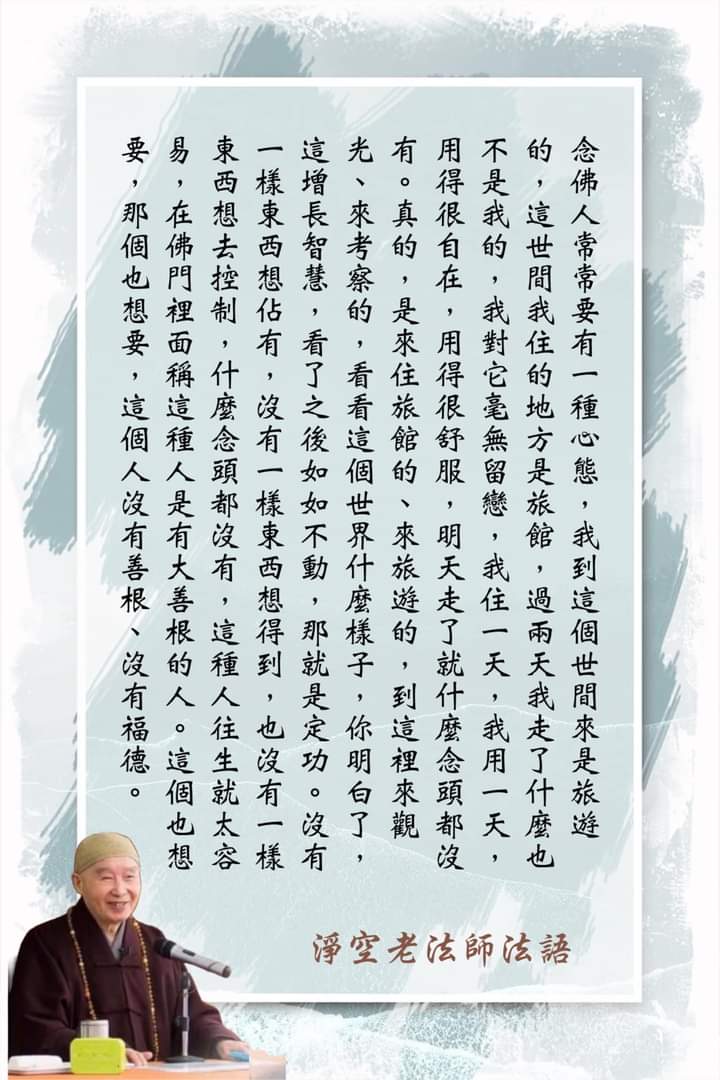 念佛人常常要有一種心態，我到這個世間來是旅遊
的，這世間我住的地方是旅館，過兩天我走了什麼也
不是我的，我對它毫無留戀，我住一天，我用一天，
用得很自在，用得很舒服，明天走了就什麼念頭都沒
有。真的，是來住旅館的、來旅遊的，到這裡來觀
光、來考察的，看看這個世界什麼樣子，你明白了，
這增長智慧，看了之後如如不動，那就是定功。沒有
一樣東西想佔有，沒有一樣東西想得到，也沒有一樣
東西想去控制，什麼念頭都沒有，這種人往生就太容
易，在佛門裡面稱這種人是有大善根的人。這個也想
要，那個也想要，這個人沒有善根、沒有福德。
淨空老法師法語